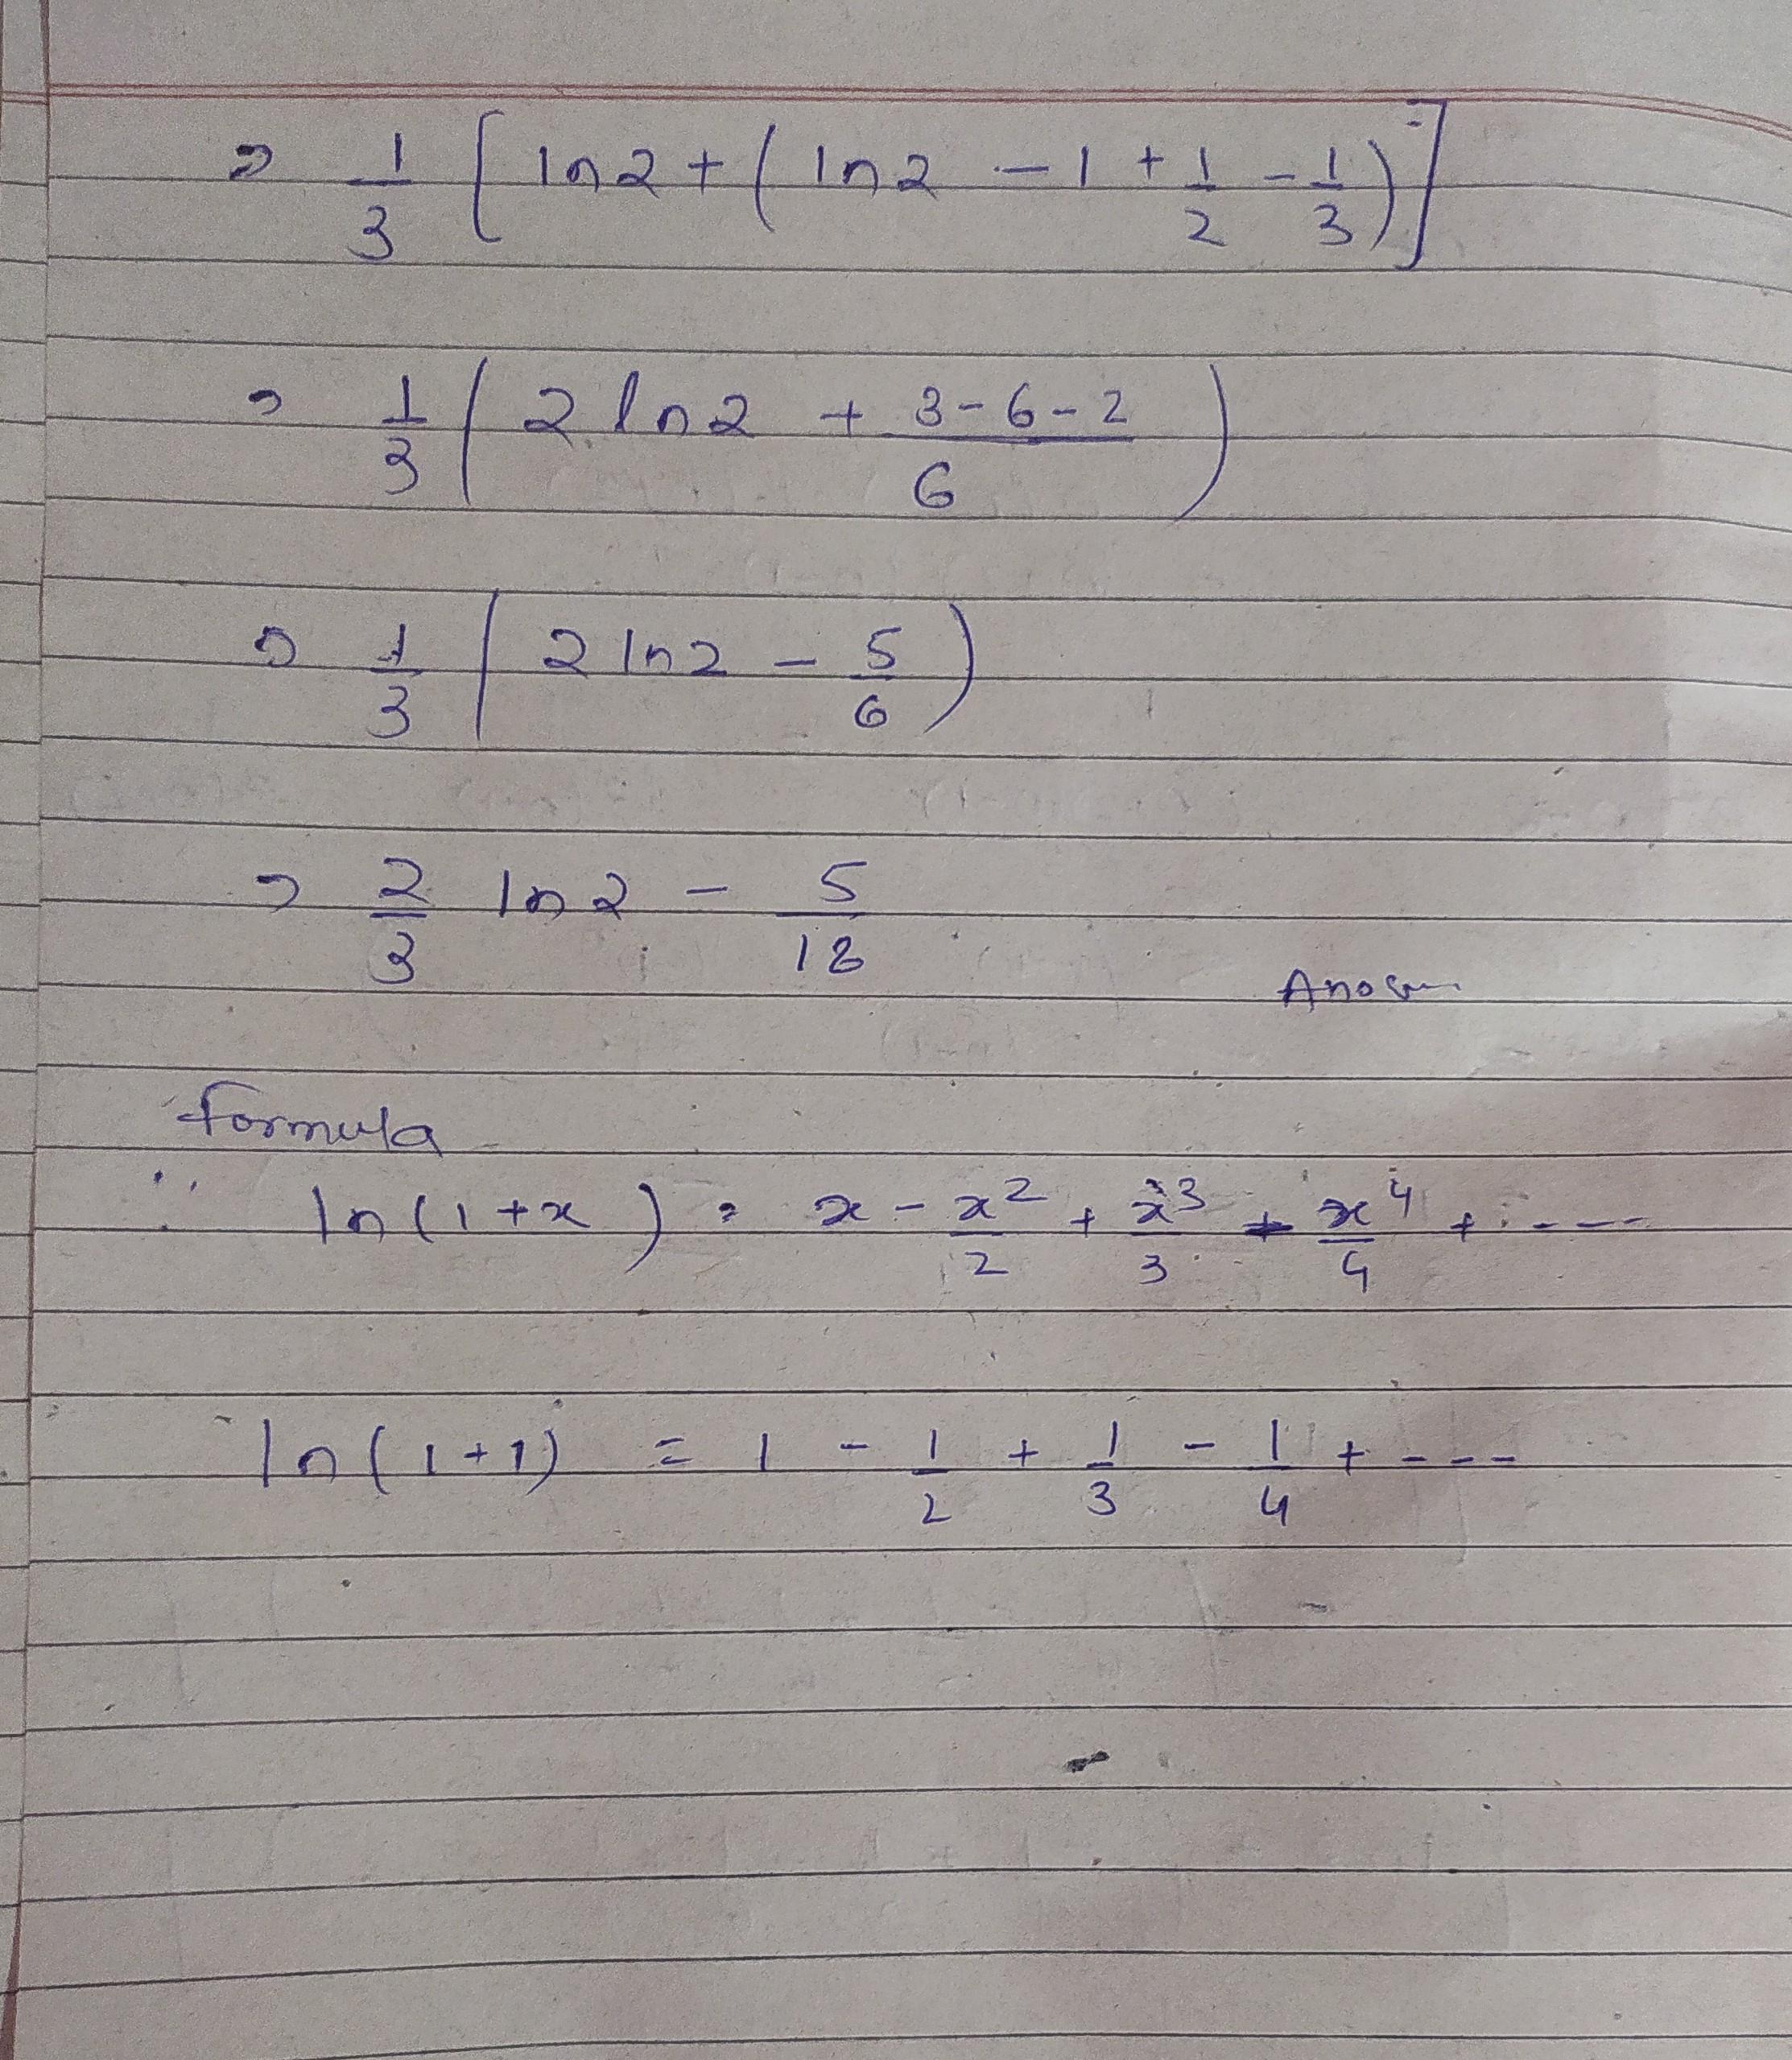 ⇒ 1/3 [ ln2 + ( ln2 - 1 + 1/2 - 1/3 ) ]
⇒ 1/3 ( 2 ln2 + (3-6-2)/6 )
⇒ 1/3 ( 2 ln2 - 5/6 )
⇒ 2/3 ln2 - 5/18
Answer
formula
∵ ln(1+x) = x - x²/2 + x³/3 - x⁴/4 + ----
ln(1+1) = 1 - 1/2 + 1/3 - 1/4 + ----